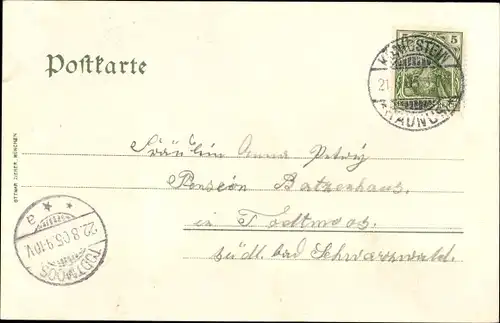 Postkarte
5
KÖNIGSTEIN
21.
(TAUNUS)
OTTMAR ZIEHER, MÜNCHEN
Fräulein Anna Petri
Pension Batzenhaus.
in Todtmoos
südl. bad Schwarzwald.
* * a
22.8.05.9-10V.
TODTMOOS